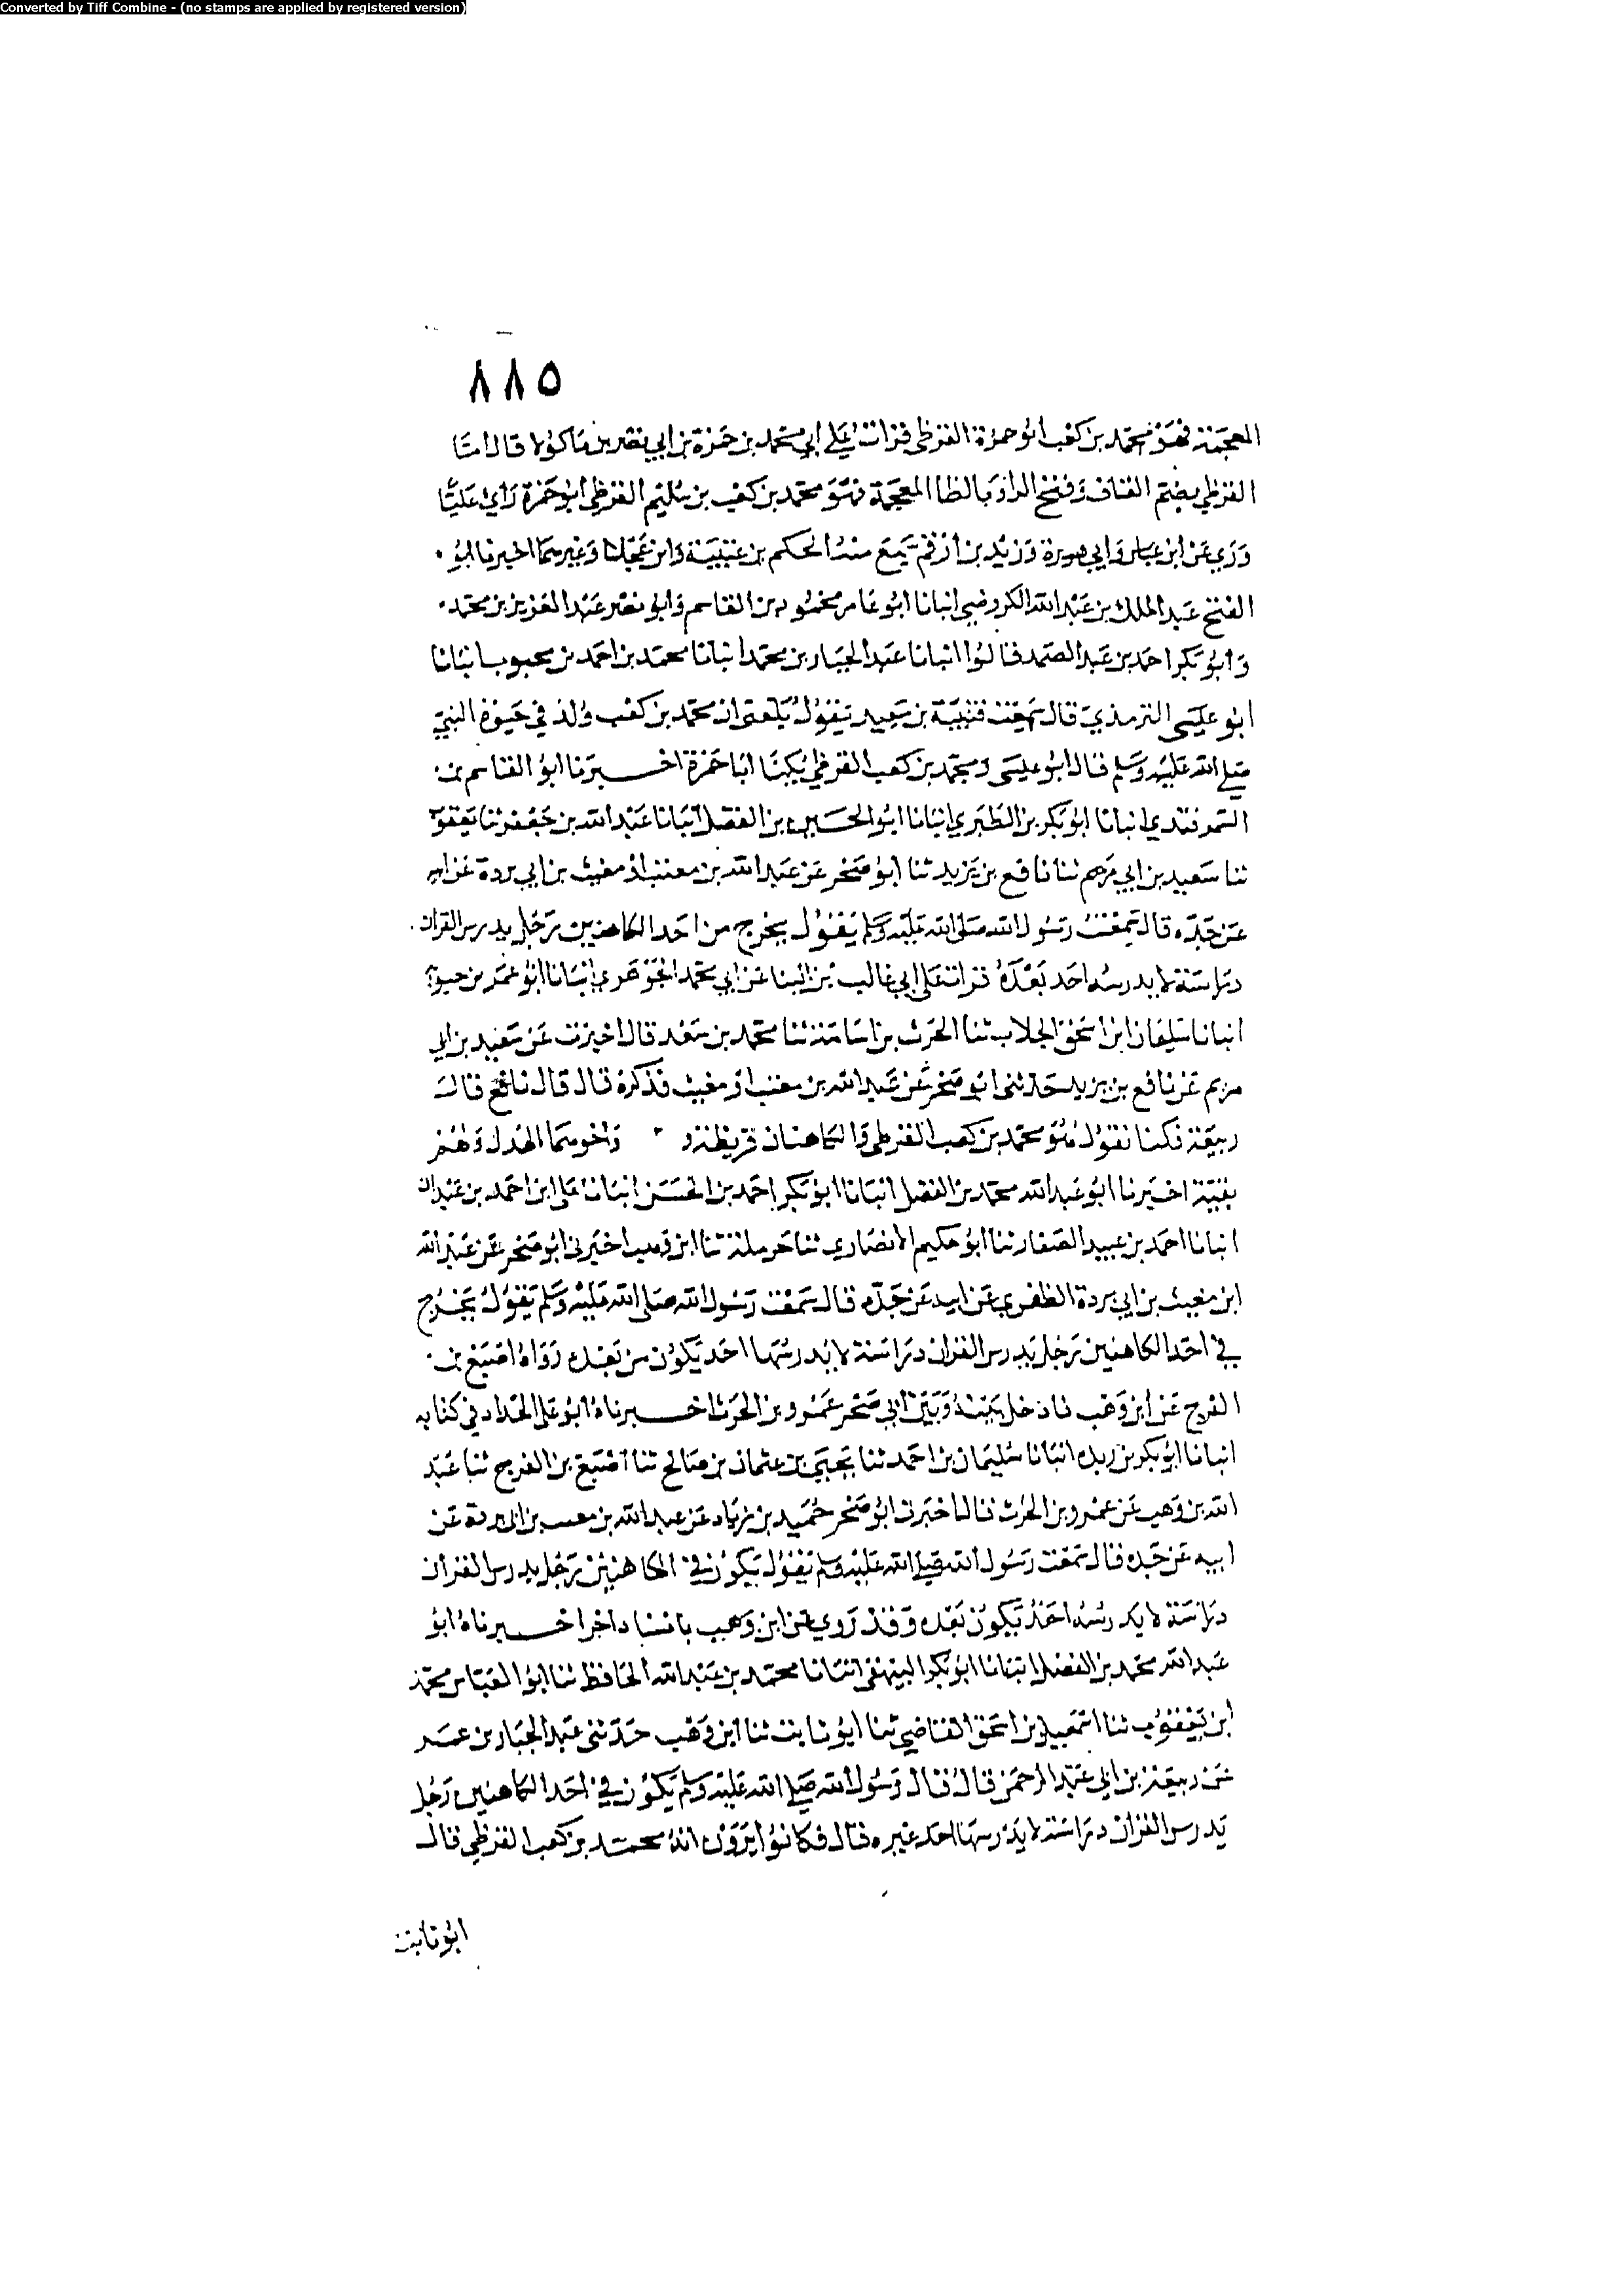 Converted by Tiff Combine - (no stamps are applied by registered version)
٨٨٥
المعجمة فهو محمد بن كعب ابو حمزة القرظى قرات على ابي محمد بن حمزة بن ابي نصر بن ماكولا قال امّا
القرظي بضم القاف وفتح الراو بالظا المعجمة فهو محمد بن كعب بن سليم القرظي ابو حمزة راي عليّا
وروي عن ابن عباس وابي هريرة وزيد بن ارقم سمع منه الحكم بن عتيبة وابن عجلان وغيرهما اخبرنا ابو
الفتح عبد الملك بن عبد الله الكروخي انبانا ابو عامر محمود بن القاسم وابو نصر عبد العزيز بن محمد
وابو بكر احمد بن عبد الصمد قالوا انبانا عبد الجبار بن محمد انبانا محمد بن احمد بن محبوب انبانا
ابو عيسى الترمذي قال سمعت قتيبة بن سعيد يقول بلغنى ان محمد بن كعب ولد في حيوة النبي
صلى الله عليه وسلم قال ابو عيسى ومحمد بن كعب القرظي يكنا ابا حمزة اخبرنا ابو القاسم بن
السمرقندي انبانا ابو بكر بن الطبري انبانا ابو الحسين بن الفضل انبانا عبد الله بن جعفر ثنا يعقوب
ثنا سعيد بن ابي مريم ثنا نافع بن يزيد ثنا ابو صخر عن عبد الله بن معتب او مغيث بن ابي بردة عن ابيه
عن جدّه قال سمعت رسول الله صلى الله عليه وسلم يقول يخرج من احد الكاهنين رجل يدرس القران
دراسة لا يدرسه احد بعده قرات على ابي غالب بن البنا عن ابي محمد الجوهري انبانا ابو عمر بن حيوة
انبانا سليمان ابن اسحق الجلاب ثنا الحرث بن اسامة ثنا محمد بن سعد قال اخبرت عن سعيد بن ابي
مريم عن نافع بن يزيد حدثنى ابو صخر عن عبد الله بن معتب او مغيث فذكره قال قال نافع قال
ربيعة فكنا نقول هو محمد بن كعب القرظى والكاهنان قريظة و واخوهما الهدل وهم
بقية اخبرنا ابو عبد الله محمد بن الفضل انبانا ابو بكر احمد بن الحسن انبانا على ابن احمد بن عبدان
انبانا احمد بن عبيد الصفار ثنا ابو حكيم الانصاري ثنا حرملة ثنا ابن وهب اخبرنى ابو صخر عن عبد الله
ابن مغيث بن ابي بردة الظفري عن ابيه عن جدّه قال سمعت رسول الله صلى الله عليه وسلم يقول يخرج
في احد الكاهنين رجل يدرس القران دراسة لا يدرسها احد يكون من بعده رواه اصبغ بن
الفرج عن ابن وهب فادخل بينه وبين ابي صخر عمرو بن الحرث اخبرناه ابو على الحداد في كتابه
انبانا ابو بكر بن ريذه انبانا سليمان بن احمد ثنا يحيى بن عثمان بن صالح ثنا اصبغ بن الفرج ثنا عبد
الله بن وهب عن عمرو بن الحرث قال اخبرنى ابو صخر حميد بن زياد عن عبد الله بن معتب بن ابى بردة عن
ابيه عن جده قال سمعت رسول الله صلى الله عليه وسلم يقول يكون في الكاهنين رجل يدرس القران
دراسة لا يدرسه احد يكون بعده وقد روي عن ابن وهب باسناد اخر اخبرناه ابو
عبد الله محمد بن الفضل انبانا ابو بكر البيهقى انبانا محمد بن عبد الله الحافظ ثنا ابو العباس محمد
ابن يعقوب ثنا اسمعيل بن اسحق القاضي ثنا ابو ثابت ثنا ابن وهب حدثنى عبد الجبار بن عمر
عن ربيعة بن ابي عبد الرحمن قال قال رسول الله صلى الله عليه وسلم يكون في احد الكاهنين رجل
يدرس القران دراسة لا يدرسها احد غيره قال فكانوا يرون انه محمد بن كعب القرظي قال
ابو ثابت